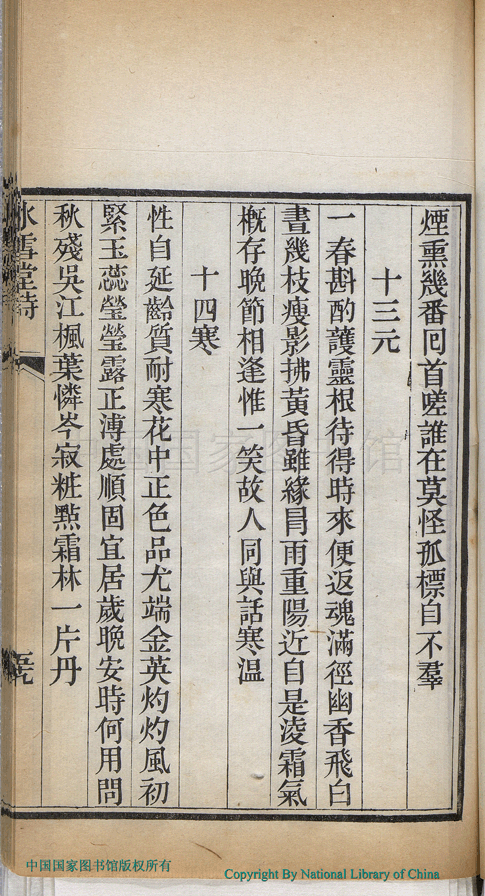 煙熏幾番囘首嗟誰在莫怪孤標自不羣
十三元
一春斟酌護靈根待得時來便返魂滿徑幽香飛白
晝幾枝瘦影拂黃昏雖緣冐雨重陽近自是淩霜氣
槪存晚節相逢惟一笑故人同與話寒溫
十四寒
性自延齡質耐寒花中正色品尤端金英灼灼風初
緊玉蕊瑩瑩露正溥處順固宜居歲晚安時何用問
秋殘吳江楓葉憐岑寂粧㸃霜林一片丹
冰雪堂詩
中国国家图书馆
中国国家图书馆版权所有
Copyright By National Library of China